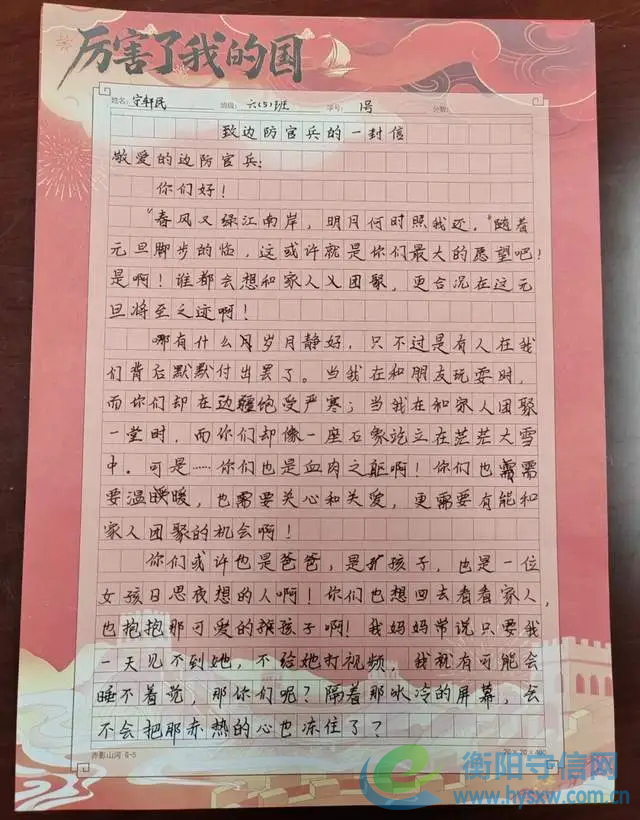 厉害了我的国
姓名:宁轩民 班级:六(5)班 学号:1号 分数:
致边防官兵的一封信
敬爱的边防官兵:
你们好!
“春风又绿江南岸,明月何时照我还。”随着
元旦脚步的临,这或许就是你们最大的愿望吧!
是啊!谁都会想和家人义团聚,更合况在这元
旦将至之迹啊!
哪有什么岁月静好,只不过是有人在我
们背后默默付出罢了。当我在和朋友玩耍时,
而你们却在边疆饱受严寒;当我在和家人团聚
一堂时,而你们却像一座石象讫立在茫茫大雪
中。可是……你们也是血肉之躯啊!你们也需
要温暖,也需要关心和关爱,更需要有能和
家人团聚的机会啊!
你们或许也是爸爸,是孩子,也是一位
女孩日思夜想的人啊!你们也想回去看看家人,
也抱抱那可爱的孩子啊!我妈妈常说只要我
一天见不到她,不给她打视频,我就有可能会
睡不着觉,那你们呢?隔着那冰冷的屏幕,会
不会把那赤热的心也冻住了?
赤影山河 B-5
20×20=400
衡阳守信网
www.hysxw.com.cn